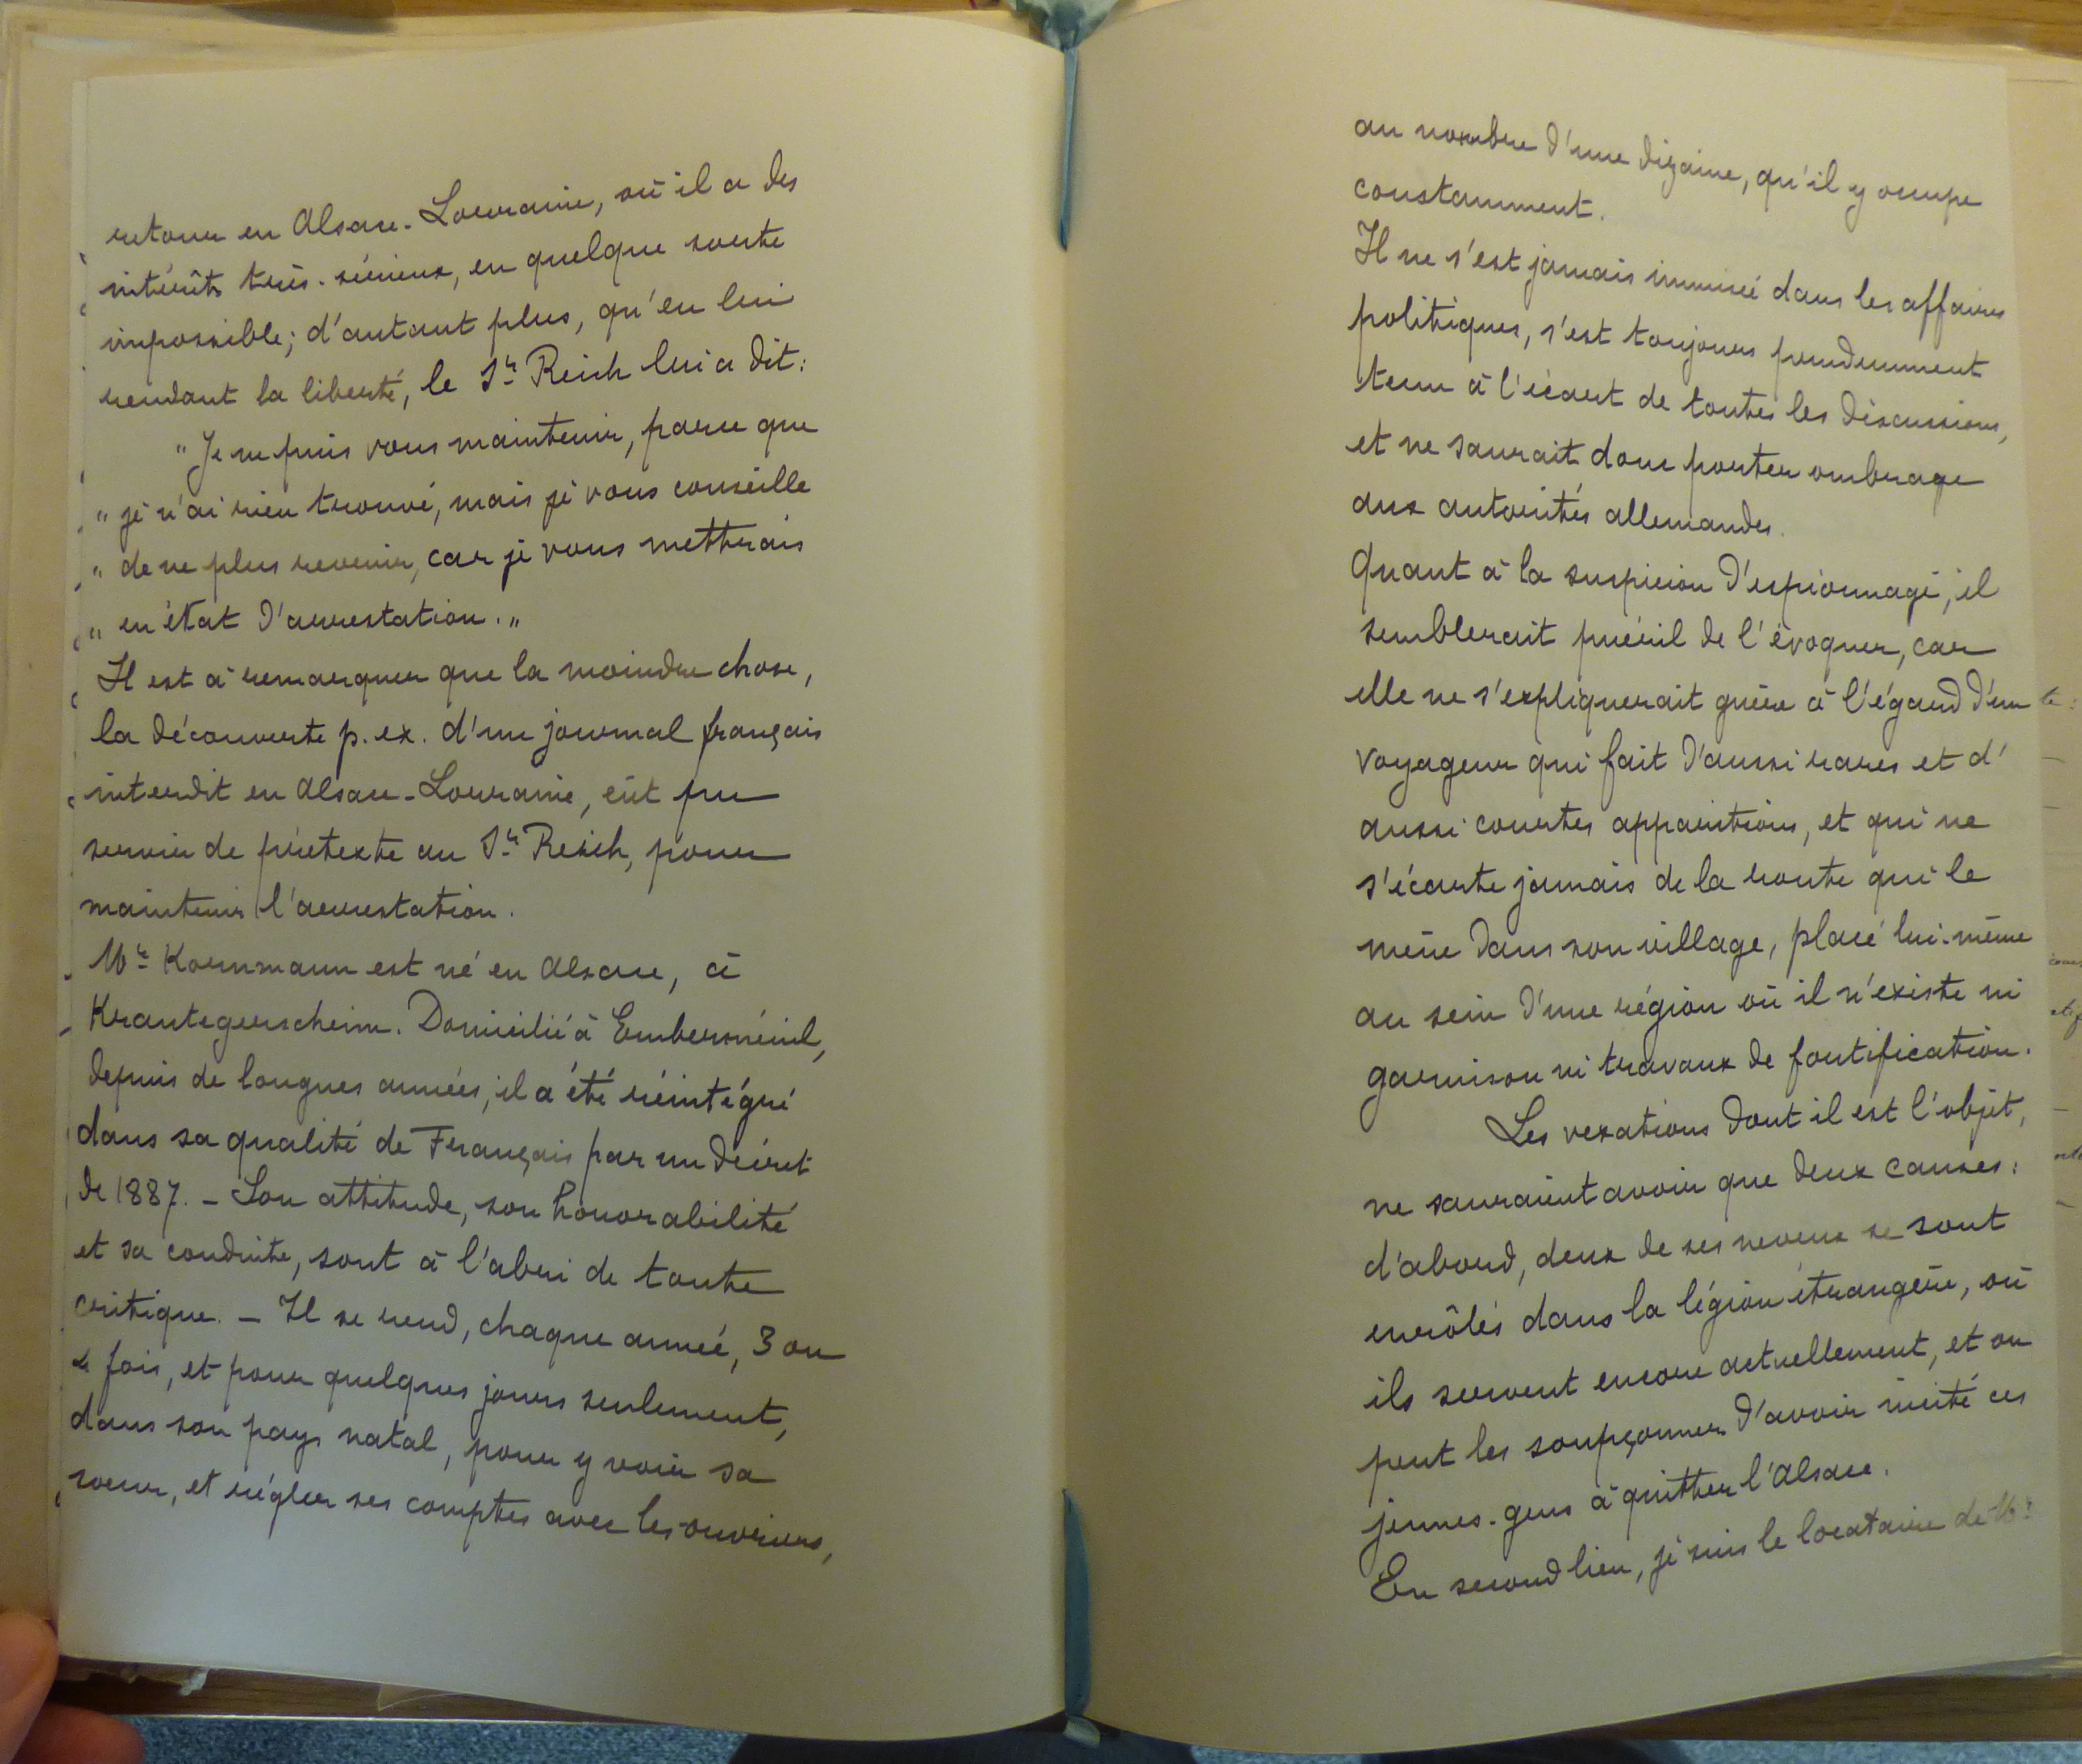 retour en Alsace-Lorraine, où il a des
intérêts très-sérieux, en quelque sorte
impossible; d'autant plus, qu'en lui
rendant la liberté, le Sr Reich lui a dit:
"Je ne puis vous maintenir, parce que
" je n'ai rien trouvé, mais je vous conseille
" de ne plus revenir, car je vous mettrais
" en état d'arrestation. "
Il est à remarquer que la moindre chose,
la découverte p. ex. d'un journal français
interdit en Alsace-Lorraine, eût pu
servir de prétexte au Sr Reich, pour
maintenir l'arrestation.
Mr Kornmann est né en Alsace, à
Krautegerscheim. Domicilié à Emberménil,
depuis de longues années, il a été réintégré
dans sa qualité de Français par un décret
de 1887. - Son attitude, son honorabilité
et sa conduite, sont à l'abri de toute
critique. - Il se rend, chaque année, 3 ou
4 fois, et pour quelques jours seulement,
dans son pays natal, pour y voir sa
soeur, et régler ses comptes avec les ouvriers,
au nombre d'une dizaine, qu'il y occupe
constamment.
Il ne s'est jamais immiscé dans les affaires
politiques, s'est toujours prudemment
tenu à l'écart de toutes les discussions,
et ne saurait donc porter ombrage
aux autorités allemandes.
Quant à la suspicion d'espionnage, il
semblerait puéril de l'évoquer, car
elle ne s'expliquerait guère à l'égard d'un
voyageur qui fait d'aussi rares et d'
aussi courtes apparitions, et qui ne
s'écarte jamais de la route qui le
mène dans son village, placé lui-même
au sein d'une région où il n'existe ni
garnison ni travaux de fortification.
Les vexations dont il est l'objet,
ne sauraient avoir que deux causes:
d'abord, deux de ses neveux se sont
enrôlés dans la légion étrangère, où
ils servent encore actuellement, et on
peut les soupçonner d'avoir incité ces
jeunes-gens à quitter l'Alsace.
En second lieu, je suis le locataire de Mr